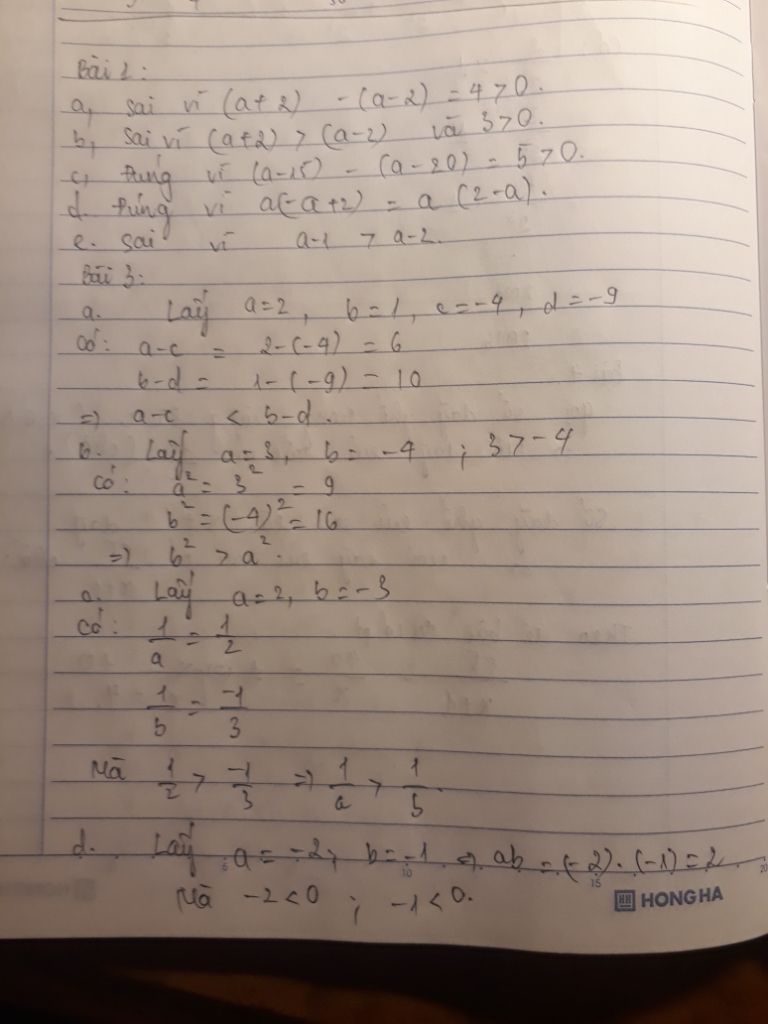 Bài 2:
a, sai vì (a+2) - (a-2) = 4 > 0.
b, sai vì (a+2) > (a-2) và 3 > 0.
c, đúng vì (a-15) - (a-20) = 5 > 0.
d. đúng vì a(-a+2) = a (2-a).
e. sai vì a-1 > a-2.
Bài 3:
a. Lấy a=2, b=1, c=-4, d=-9
Có: a-c = 2-(-4) = 6
b-d = 1-(-9) = 10
=> a-c < b-d.
b. Lấy a=3, b=-4 ; 3 > -4
Có: a² = 3² = 9
b² = (-4)² = 16
=> b² > a².
c. Lấy a=2, b=-3
Có: 1/a = 1/2
1/b = -1/3
Mà 1/2 > -1/3 => 1/a > 1/b
d. Lấy a = -2, b = -1 => ab = (-2).(-1) = 2
5 10 15 20
Mà -2 < 0 ; -1 < 0.
HH HONG HA